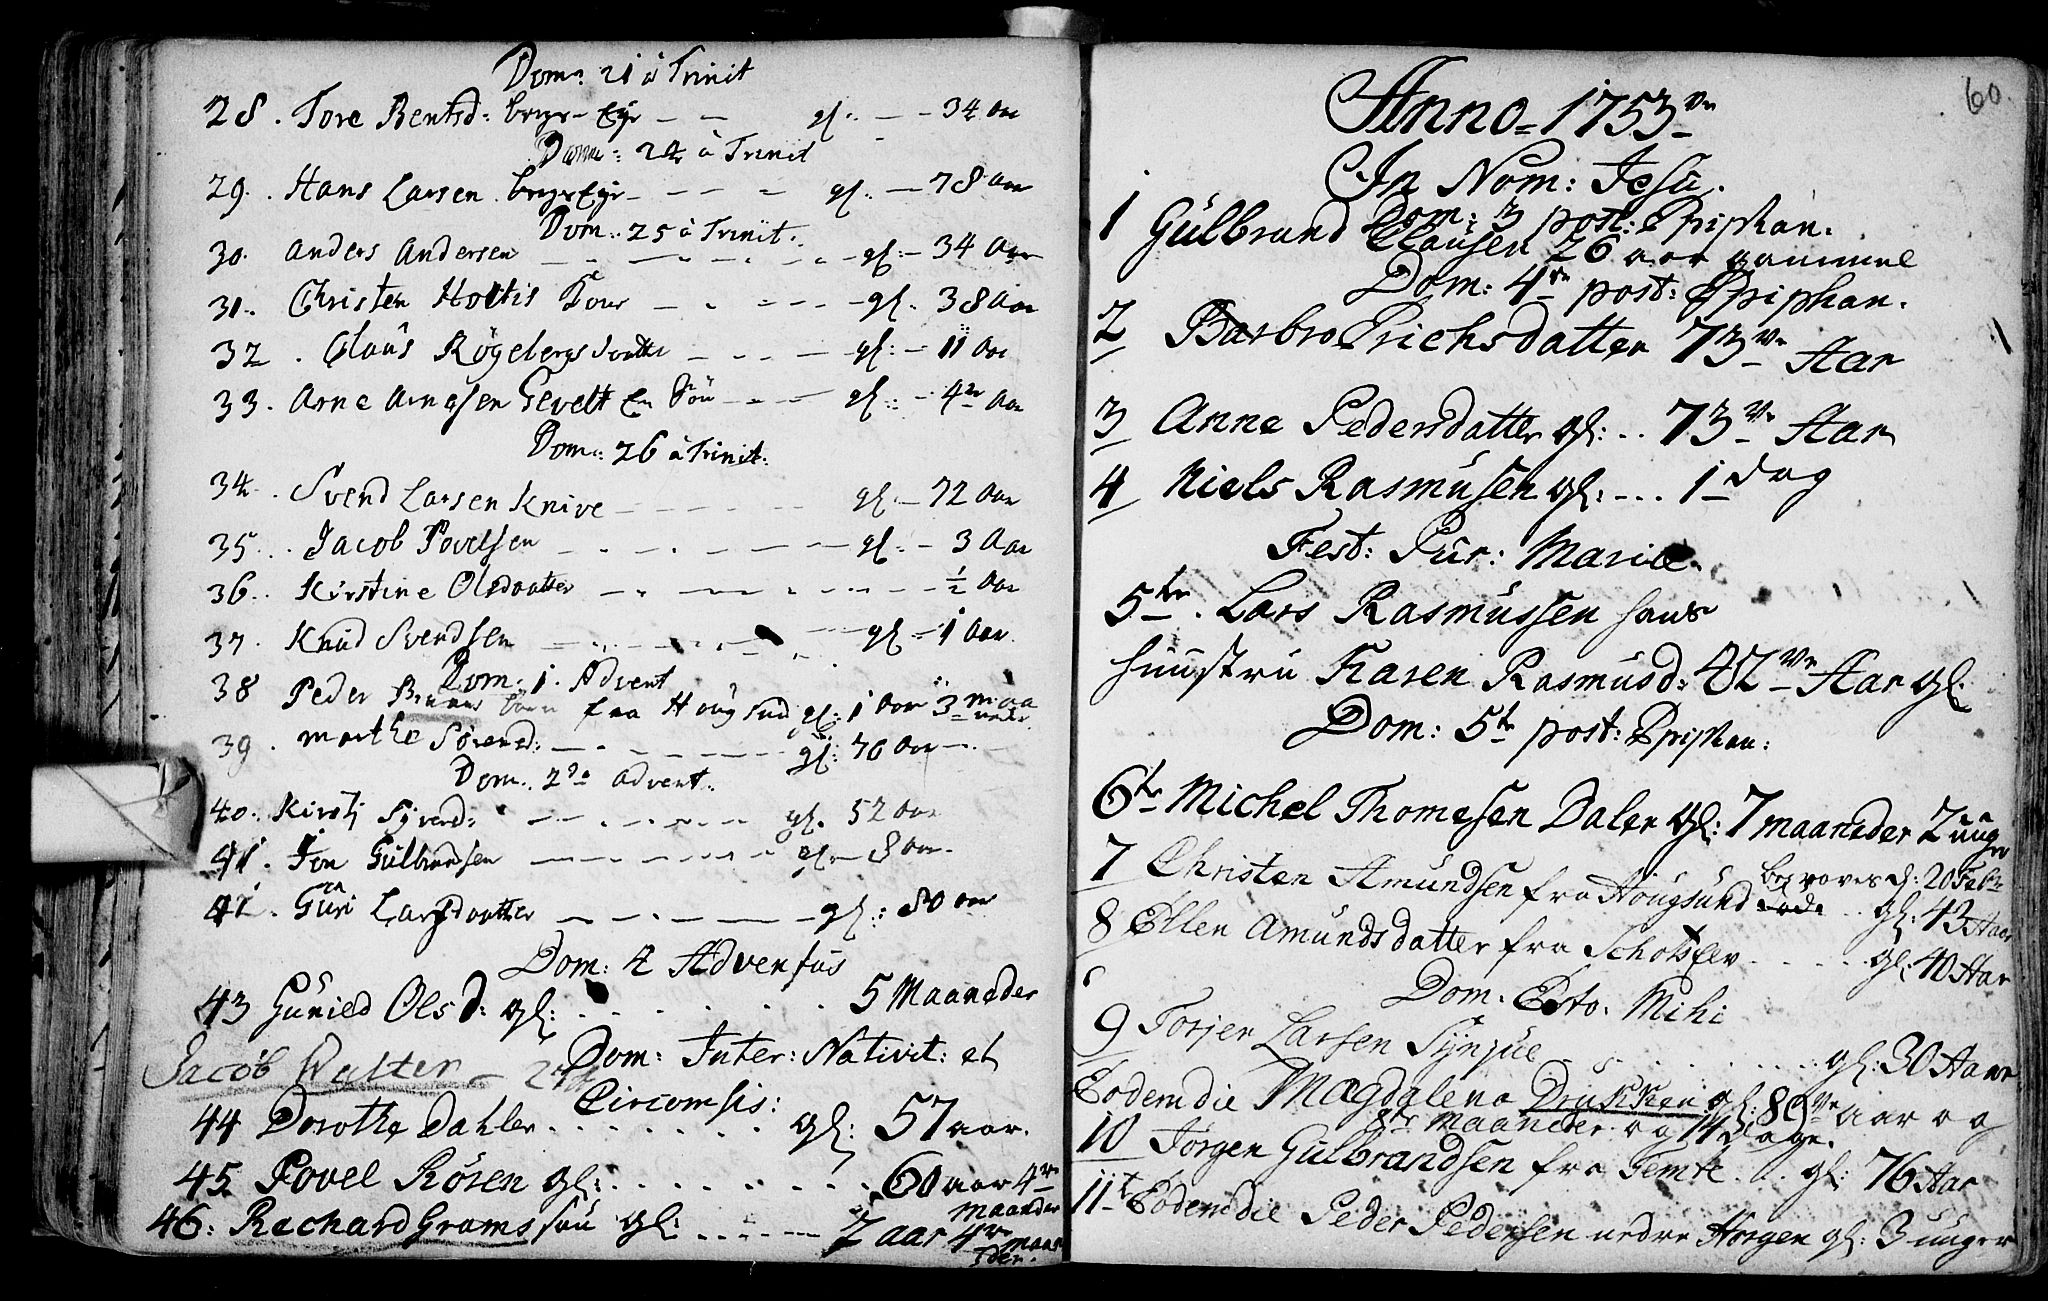 Dom: 21 à Trinit
28. Tore Bentsd: gl: 34 Aar
Dom: 24 à Trinit
29. Hans Larsen gl: 78 Aar
Dom: 25 à Trinit.
30. Anders Andersen gl: 34 Aar
31. Christen gl. 38 Aar
32. Claus Røgebergs gl: 11 Aar
33. Arne Arnesen Gevelt En Søn gl: 4re Aar
Dom: 26 à Trinit:
34. Svend Larsen Knive gl: 72 Aar
35. Jacob Povelsen gl: 3 Aar
36. Kirstine Olsdaatter ½ Aar
37. Knud Svendsen gl: 1 Aar.
Dom. 1. Advent
38 Peder fra Hougsund gl: 1 Aar 3 maaneder
39. marthe Sørensd: gl: 70 Aar
Dom. 2da Advent.
40. Kirsti Siversd: gl. 52 Aar
41. Jon Gulbransen gl. 8 Aar.
42. Guri Larsdaatter gl: 80 Aar
Dom: 4 Adventus
43 Gunild Olsd: gl: 5 Maaneder
Dom: Inter: Nativit: et
Jacob Walter
Circomsis:
44 Dorothe Dahler gl: 57 aar.
45. Povel Røsen gl: 60 aar 4re
maander
46: Rechard Grams søn gl: 2 aar 4re maaneder.
60.
Anno = 1753
In Nom: Jesu.
Dom: 3 post: Epiphan.
1 Gulbrand Clausen 26 aar gammel
Dom: 4re post: Epiphan.
2 Barbro Erichsdatter 73 Aar
3 Anne Pedersdatter gl: 73 Aar
4 Niels Rasmusen gl: 1 dag
Fest: Pur: Mariæ.
5te. Lars Rasmussen hans
huustru Karen Rasmusd: 42 Aar gl.
Dom: 5te post: Epiphan:
6te Michel Thomesen Daler gl: 7 maaneder 2 uuger
7 Christen Amundsen fra Hougsund begraves d: 20 Febr gl: 43 Aar
8 Ellen Amundsdatter fra gl: 40 Aar
Dom. Esto. Mihi
9 Torjer Larsen gl: 30 Aar
Eodem die Magdalena gl: 89 aar og
8te Maaneder og 14 Dage.
10 Jørgen Gulbrandsen fra Temte gl: 76 Aar
11te Eodem die Peder Pedersen nedre Horgen gl: 3 uuger